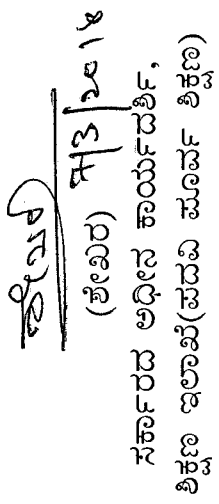 7/3/2018
(ಶೇಖರ)
ಸರ್ಕಾರದ ಅಧೀನ ಕಾರ್ಯದರ್ಶಿ,
ಶಿಕ್ಷಣ ಇಲಾಖೆ(ಪದವಿ ಪೂರ್ವ ಶಿಕ್ಷಣ)